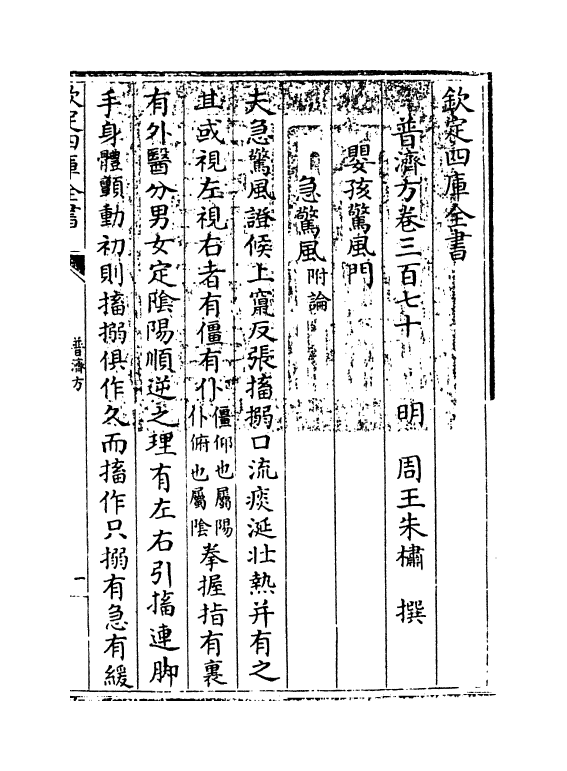 欽定四庫全書
普濟方卷三百七十 明 周王朱橚 撰
嬰孩驚風門
急驚風附論
夫急驚風證候上竄反張搐搦口流痰涎壯熱并有之
其或視左視右者有僵有仆僵仰也屬陽仆俯也屬陰拳握指有裏
有外醫分男女定隂陽順逆之理有左右引搐連脚
手身體顫動初則搐搦俱作久而搐作只搦有急有緩
欽定四庫全書
普濟方
一